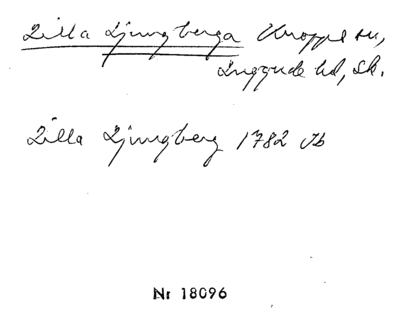 Lilla Ljungberga Knoppe sn,
Luggude hd, Sk.
Lilla Ljungberg 1782 Jb
Nr 18096